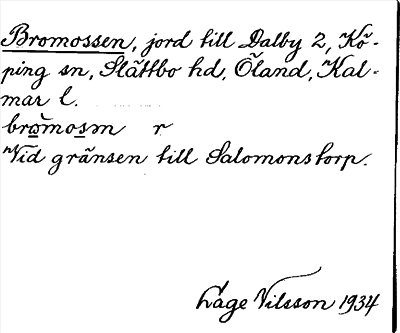 Bromossen, jord till Dalby 2, Kö-
ping sn, Slättbo hd, Öland, Kal-
mar l.
bromosən r
Vid gränsen till Salomonstorp.
Låge Nilsson 1934